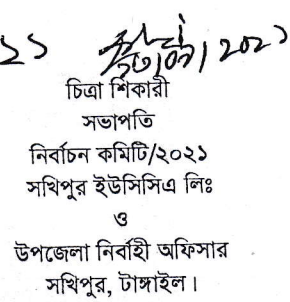 ২১
চিত্রা শিকারী
সভাপতি
নির্বাচন কমিটি/২০২১
সখিপুর ইউসিসিএ লিঃ
ও
উপজেলা নির্বাহী অফিসার
সখিপুর, টাঙ্গাইল।